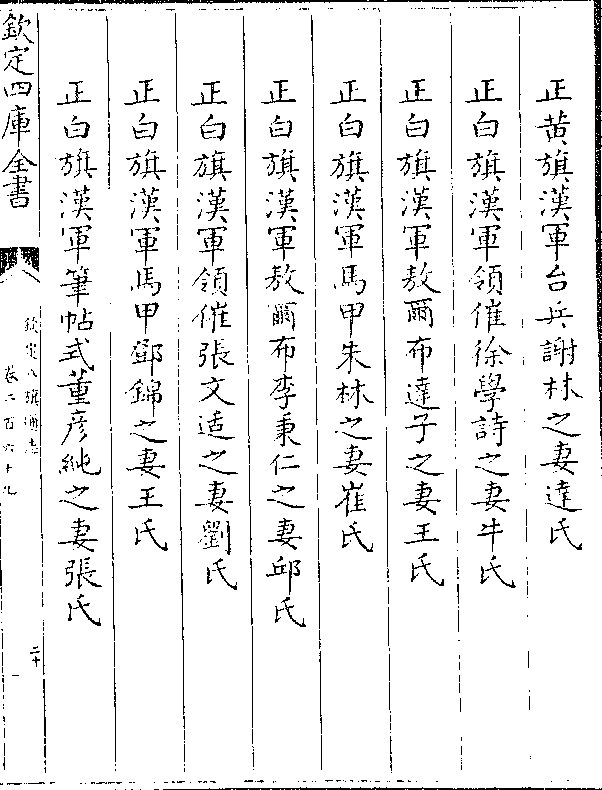 正黄旗漢軍台兵謝林之妻達氏
正白旗漢軍領催徐學詩之妻牛氏
正白旗漢軍敖爾布達子之妻王氏
正白旗漢軍馬甲朱林之妻崔氏
正白旗漢軍敖爾布李秉仁之妻邱氏
正白旗漢軍領催張文适之妻劉氏
正白旗漢軍馬甲鄧錦之妻王氏
正白旗漢軍筆帖式董彦純之妻張氏
欽定四庫全書
欽定八旗通志
卷二百六十九
二十